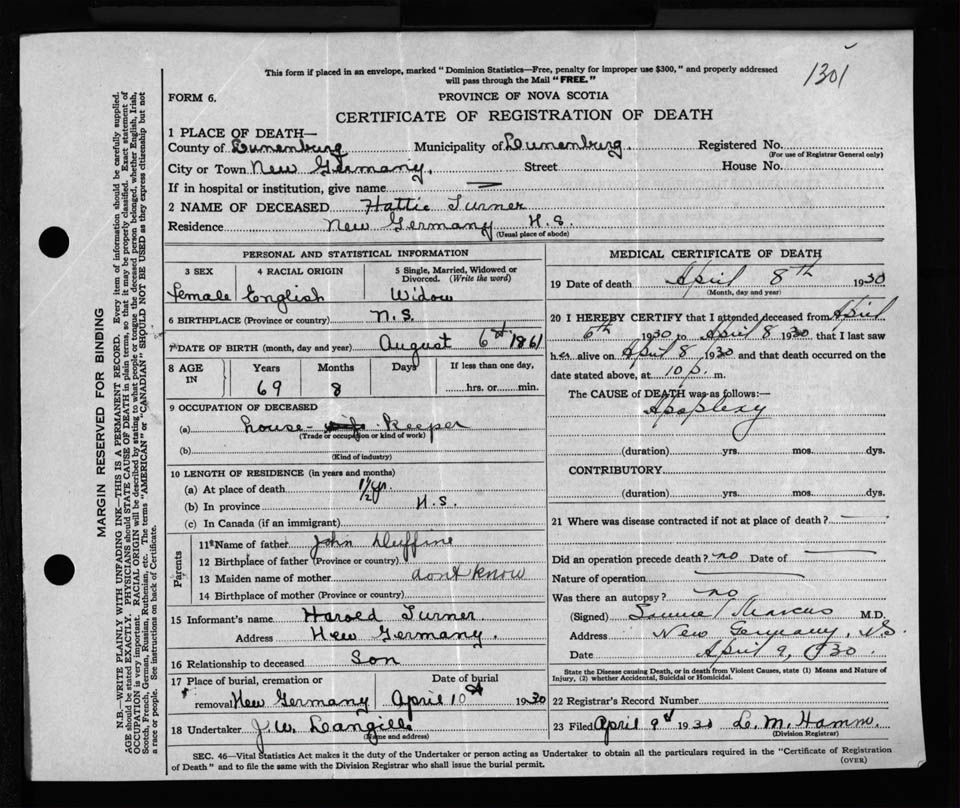 1301
This form if placed in an envelope, marked "Dominion Statistics—Free, penalty for improper use $300," and properly addressed
will pass through the Mail "FREE."
FORM 6.
PROVINCE OF NOVA SCOTIA
CERTIFICATE OF REGISTRATION OF DEATH
1 PLACE OF DEATH—
County of Lunenburg Municipality of Lunenburg. Registered No.
(For use of Registrar General only)
City or Town New Germany, Street House No.
If in hospital or institution, give name —
2 NAME OF DECEASED Hattie Turner
Residence New Germany N.S.
(Usual place of abode)
PERSONAL AND STATISTICAL INFORMATION
3 SEX 4 RACIAL ORIGIN 5 Single, Married, Widowed or Divorced. (Write the word)
Female English Widow
6 BIRTHPLACE (Province or country) N.S.
7 DATE OF BIRTH (month, day and year) August 6th 1861
8 AGE IN Years Months Days If less than one day,
69 8 hrs. or min.
9 OCCUPATION OF DECEASED
(a) house- keeper
(Trade or occupation or kind of work)
(b)
(Kind of industry)
10 LENGTH OF RESIDENCE (in years and months)
(a) At place of death 1 1/2 yr.
(b) In province N.S.
(c) In Canada (if an immigrant)
Parents
11 Name of father John
12 Birthplace of father (Province or country)
13 Maiden name of mother dont know
14 Birthplace of mother (Province or country)
15 Informant's name Harold Turner
Address New Germany.
16 Relationship to deceased Son
17 Place of burial, cremation or removal Date of burial
New Germany April 10 1930
18 Undertaker J.W. Langille
(Name and address)
MEDICAL CERTIFICATE OF DEATH
19 Date of death April 8th 1930
(Month, day and year)
20 I HEREBY CERTIFY that I attended deceased from April
6th 1930 to April 8 1930 that I last saw
her alive on April 8 1930 and that death occurred on the
date stated above, at 10 p. m.
The CAUSE of DEATH was as follows:—
Apoplexy
(duration) yrs. mos. dys.
CONTRIBUTORY
(duration) yrs. mos. dys.
21 Where was disease contracted if not at place of death? —
Did an operation precede death? no Date of —
Nature of operation —
Was there an autopsy? no
(Signed) Marcus M.D.
Address New Germany, N.S.
Date April 9, 1930.
State the Disease causing Death, or in death from Violent Causes, state (1) Means and Nature of
Injury, (2) whether Accidental, Suicidal or Homicidal.
22 Registrar's Record Number
23 Filed April 9 1930 L. M. Hamm.
(Division Registrar)
SEC. 46—Vital Statistics Act makes it the duty of the Undertaker or person acting as Undertaker to obtain all the particulars required in the "Certificate of Registration
of Death" and to file the same with the Division Registrar who shall issue the burial permit.
(OVER)
MARGIN RESERVED FOR BINDING
N.B.—WRITE PLAINLY WITH UNFADING INK—THIS IS A PERMANENT RECORD. Every item of information should be carefully supplied.
AGE should be stated EXACTLY. PHYSICIANS should STATE CAUSE OF DEATH in plain terms, so that it may be properly classified. Exact statement of
OCCUPATION is very important. RACIAL ORIGIN will be described by stating to what people or tongue the deceased person belonged, whether English, Irish,
Scotch, French, German, Russian, Ruthenian, etc. The terms "AMERICAN" or "CANADIAN" SHOULD NOT BE USED as they express citizenship but not
a race or people. See instructions on back of Certificate.